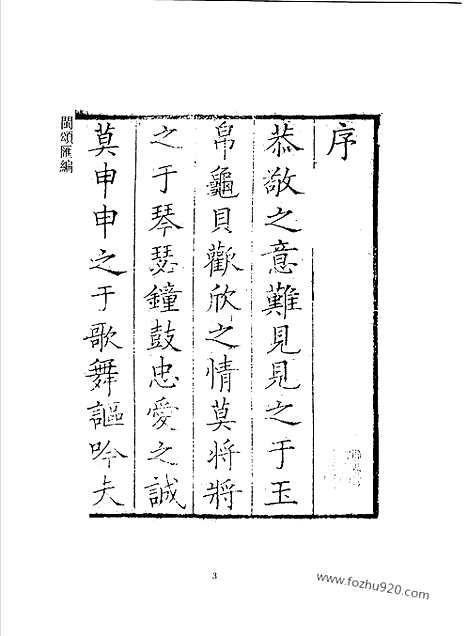 序
恭敬之意難見見之于玉
帛龜貝歡欣之情莫將將
之于琴瑟鐘鼓忠愛之誠
莫申申之于歌舞謳吟夫
閩頌匯編
3
www.fozhu920.com